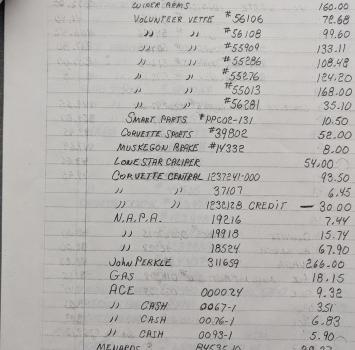 WIPER ARMS 160.00
VOLUNTEER VETTE #56106 72.68
" " #56108 99.60
" " #55909 133.11
" " #55286 108.48
" " #55276 124.20
" " #55013 168.00
" " #56281 35.10
SMART PARTS #PPC02-131 10.50
CORVETTE SPORTS #39802 52.00
MUSKEGON BRAKE #14332 8.00
LONESTAR CALIPER 54.00
CORVETTE CENTRAL 1237241-000 93.50
" " 37107 6.45
" " 1232128 CREDIT — 30.00
N.A.P.A. 19216 7.44
" 19918 15.74
" 18524 67.90
JOHN PERKLE 311659 266.00
GAS 18.15
ACE 000024 9.32
" CASH 0067-1 3.51
" CASH 0076-1 6.83
" CASH 0093-1 5.90
MENARDS